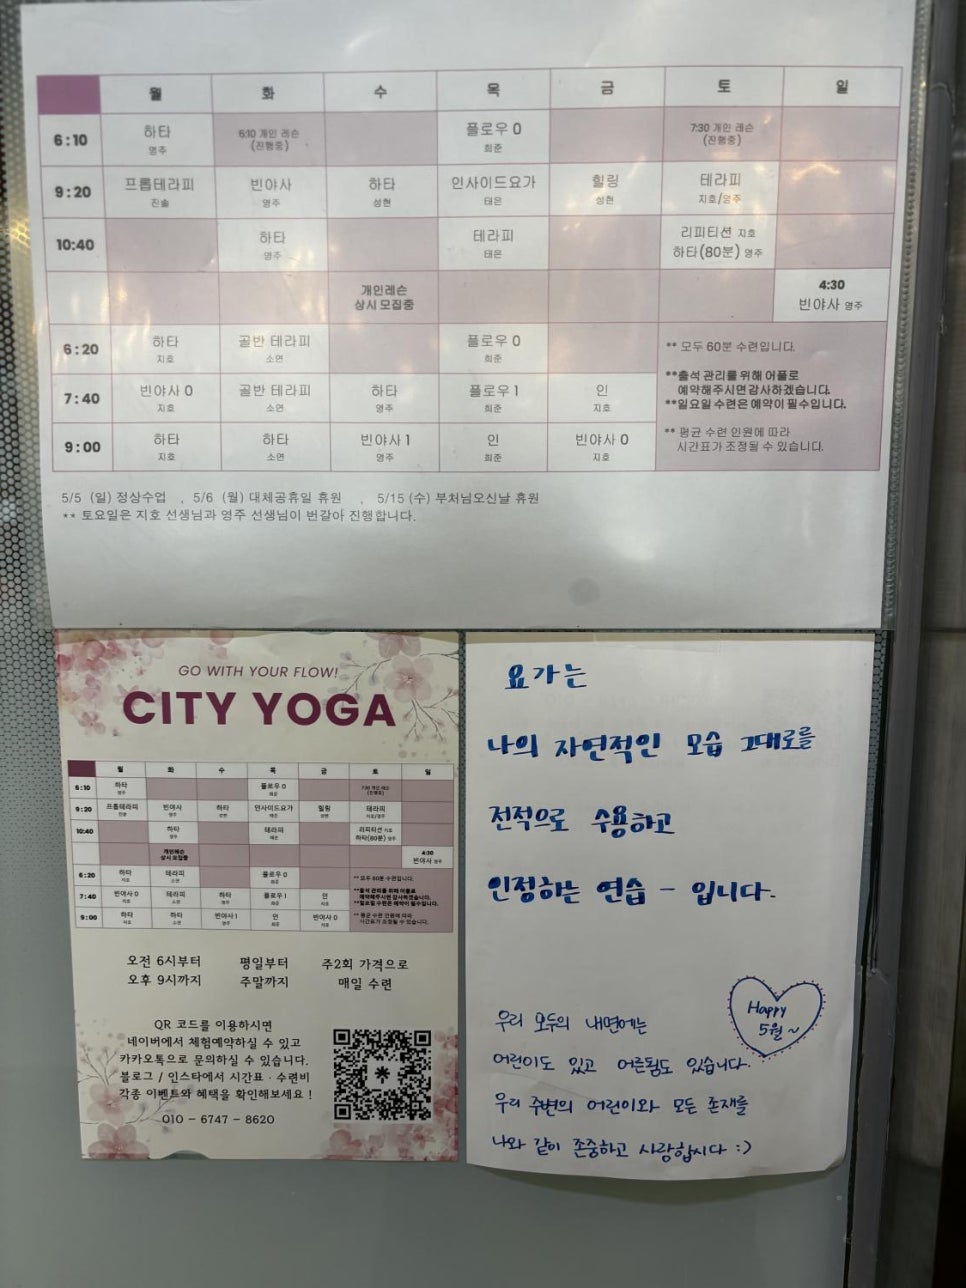 월 화 수 목 금 토 일
6:10 하타 6:10 개인 레슨 플로우 0 7:30 개인 레슨
영주 (진행중) 희준 (진행중)
9:20 프롭테라피 빈야사 하타 인사이드요가 힐링 테라피
진솔 영주 성현 태은 성현 지호/영주
10:40 하타 테라피 리피티션 지호
영주 태은 하타(80분) 영주
개인레슨 4:30
상시 모집중 빈야사 영주
6:20 하타 골반 테라피 플로우 0 ** 모두 60분 수련입니다.
지호 소연 희준
**출석 관리를 위해 어플로
7:40 빈야사 0 골반 테라피 하타 플로우 1 인 예약해주시면감사하겠습니다.
지호 소연 영주 희준 지호 **일요일 수련은 예약이 필수입니다.
9:00 하타 하타 빈야사 1 인 빈야사 0 ** 평균 수련 인원에 따라
지호 소연 영주 희준 지호 시간표가 조정될 수 있습니다.
5/5 (일) 정상수업 , 5/6 (월) 대체공휴일 휴원 , 5/15 (수) 부처님오신날 휴원
** 토요일은 지호 선생님과 영주 선생님이 번갈아 진행합니다.
GO WITH YOUR FLOW!
CITY YOGA
월 화 수 목 금 토 일
6:10 하타 플로우 0 7:30 개인 레슨
영주 희준 (진행중)
9:20 프롭테라피 빈야사 하타 인사이드요가 힐링 테라피
진솔 영주 성현 태은 성현 지호/영주
10:40 하타 테라피 리피티션 지호
영주 태은 하타(80분) 영주
개인레슨 4:30
상시 모집중 빈야사 영주
6:20 하타 테라피 플로우 0 ** 모두 60분 수련입니다.
지호 소연 희준
**출석 관리를 위해 어플로
7:40 빈야사 0 테라피 하타 플로우 1 인 예약해주시면감사하겠습니다.
지호 소연 영주 희준 지호 **일요일 수련은 예약이 필수입니다.
9:00 하타 하타 빈야사 1 인 빈야사 0 ** 평균 수련 인원에 따라
지호 소연 영주 희준 지호 시간표가 조정될 수 있습니다.
오전 6시부터 평일부터 주2회 가격으로
오후 9시까지 주말까지 매일 수련
QR 코드를 이용하시면
네이버에서 체험예약하실 수 있고
카카오톡으로 문의하실 수 있습니다.
블로그 / 인스타에서 시간표 · 수련비
각종 이벤트와 혜택을 확인해보세요 !
010 - 6747 - 8620
요가는
나의 자연적인 모습 그대로를
전적으로 수용하고
인정하는 연습 - 입니다.
Happy
5월~
우리 모두의 내면에는
어린이도 있고 어른됨도 있습니다.
우리 주변의 어린이와 모든 존재를
나와 같이 존중하고 사랑합시다 :)